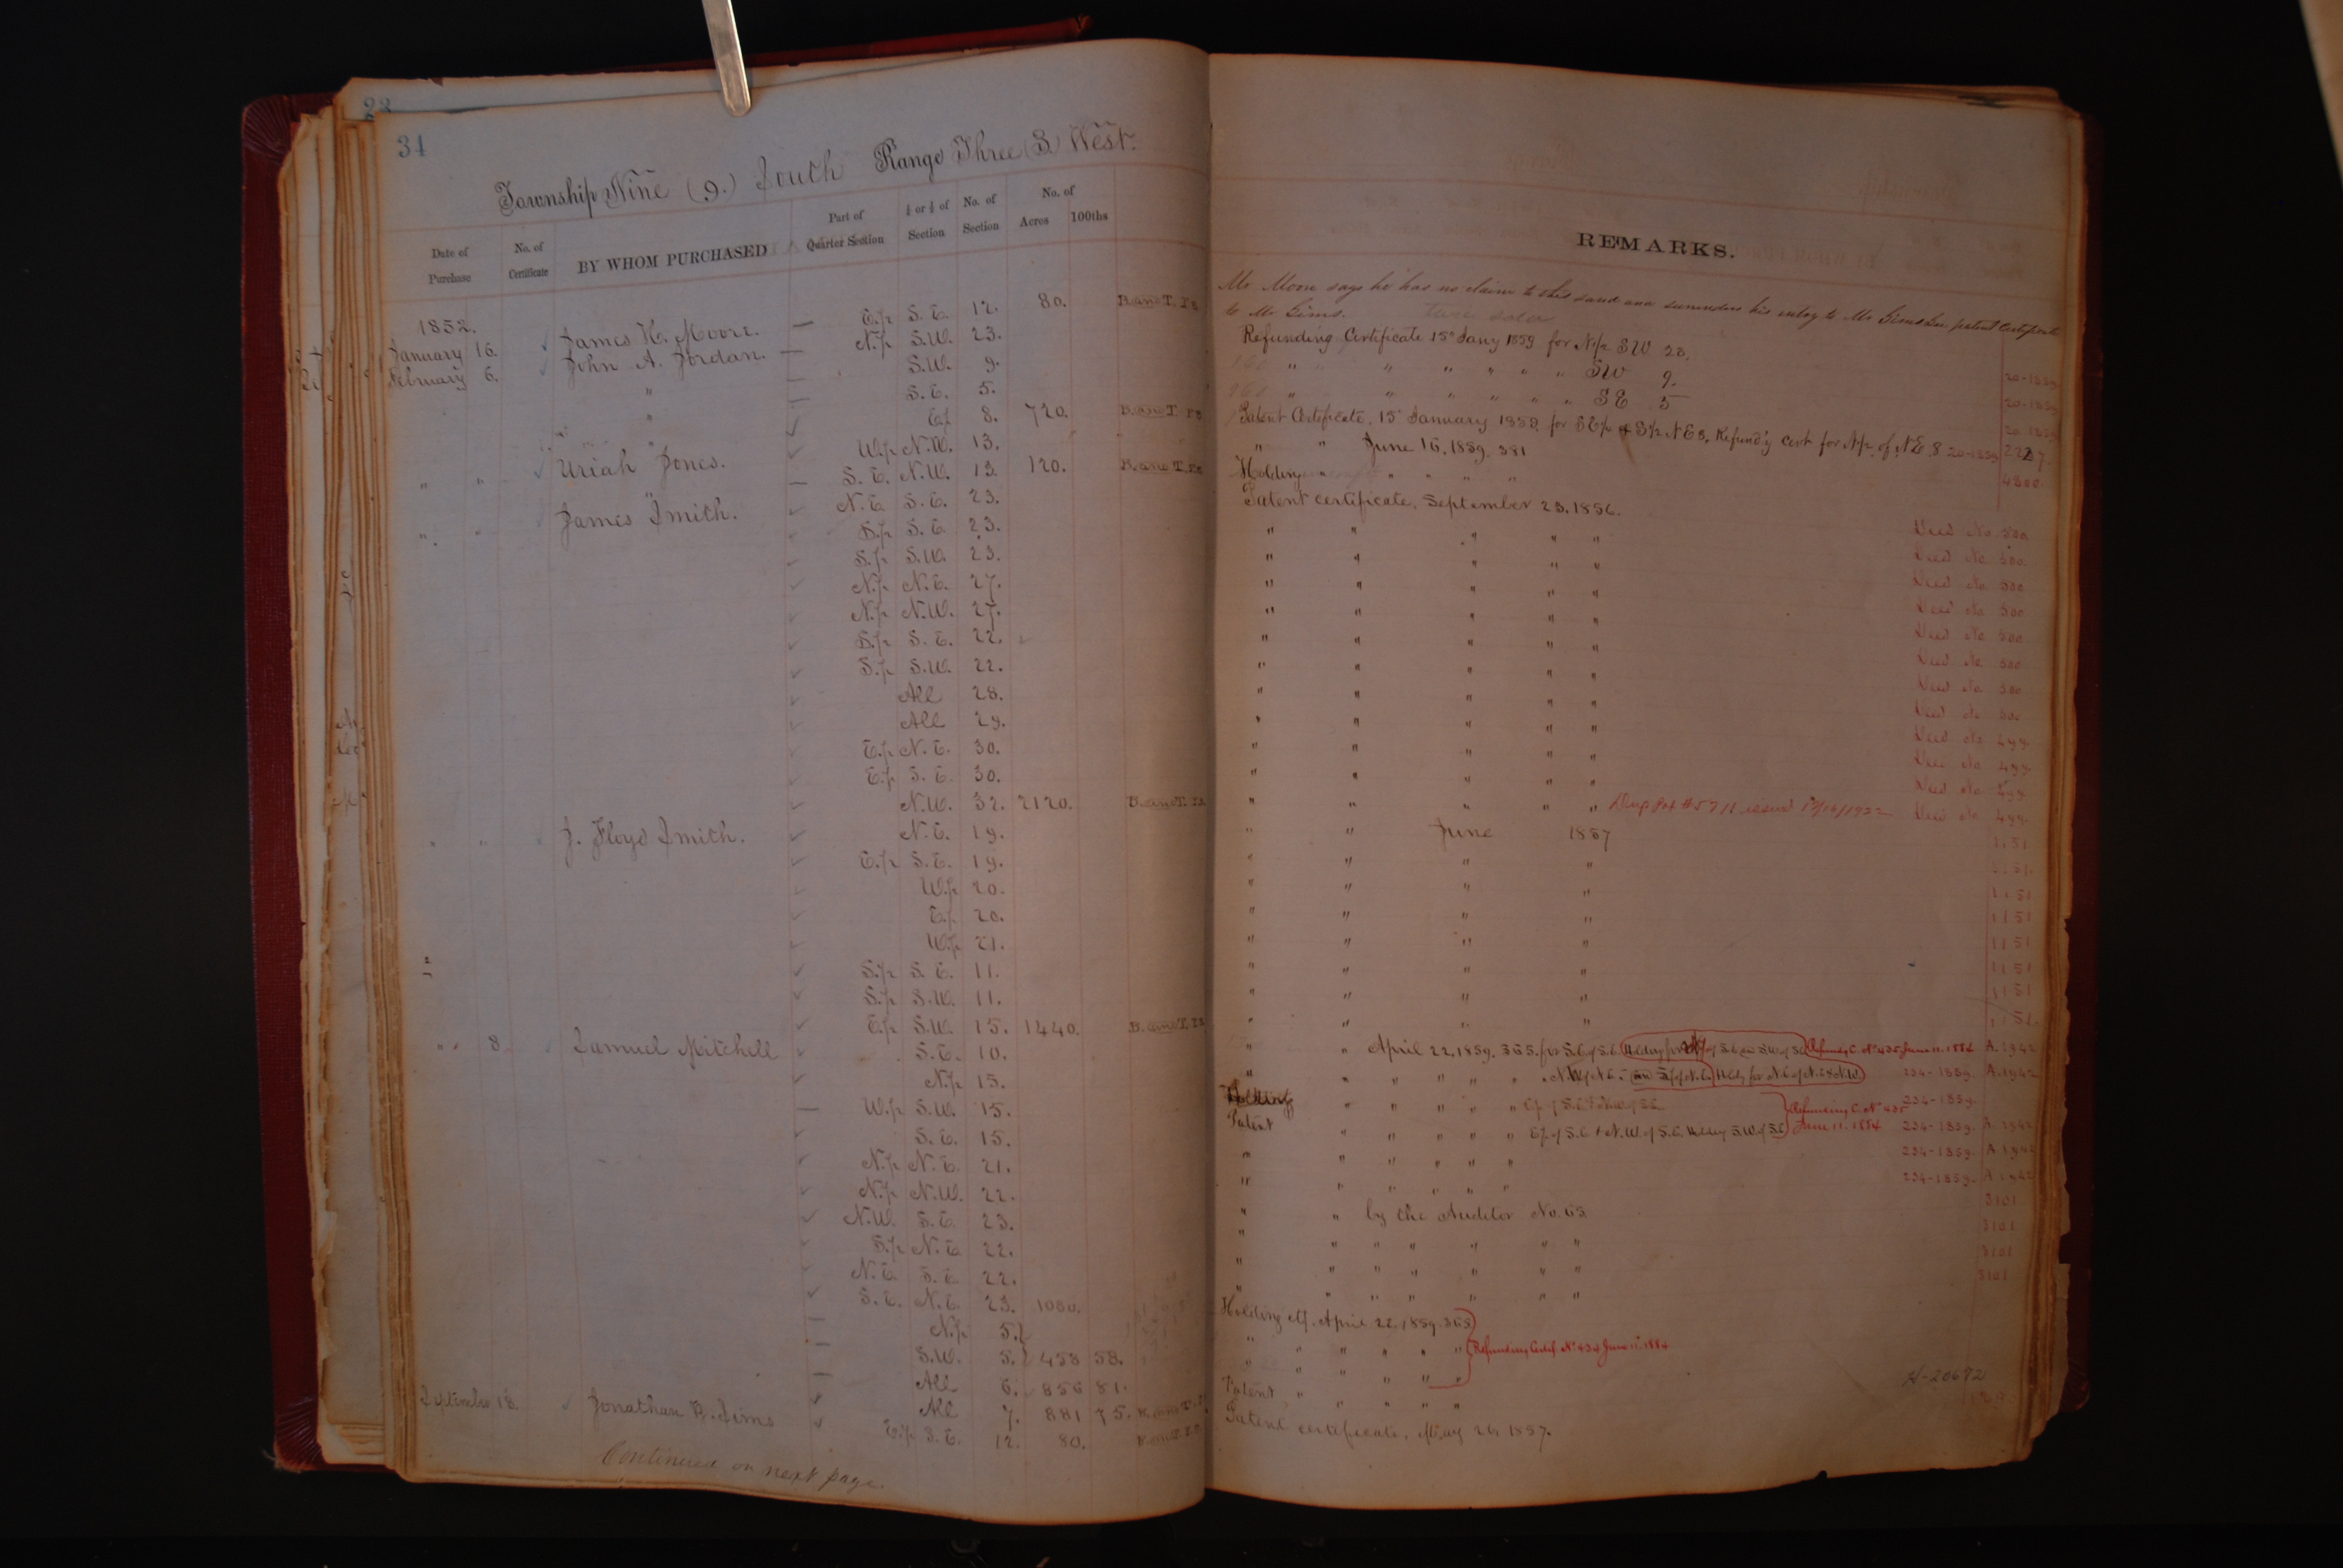 34
Township Nine (9.) South Range Three (3.) West.
Date of Purchase No. of Certificate BY WHOM PURCHASED Part of Quarter Section ½ or ¼ of Section No. of Section No. of Acres 100ths
REMARKS.
1852.
January 16. James H. Moore. — E.½ S.E. 12. 80.
Mr Moore says he has no claim to this land and surrenders his entry to Mr Sims See patent Certificate
to Mr Sims. Twice sold
February 6. John A. Jordan. — N.½ S.W. 23. Refunding Certificate 15" Jany 1859 for N½ SW 23. 20-1859
" — S.W. 9. " " " " " " " SW 9. 20-1859
" — S.E. 5. " " " " " " SE 5 20-1859
" E.½ 8. 720. Patent Certificate, 15 January 1859 for SE½ & S½ NE 8, Refund'g cert for N½ of NE 8 20-1859
" " Uriah Jones. W.½ N.W. 13. " " June 16, 1859. 381
— S.E. N.W. 13. 120. Holding " " " " 4300.
" " James Smith. N.E. S.E. 23. Patent certificate, September 23, 1856.
S.½ S.E. 23. " " " " " Deed No. 500
S.½ S.W. 23. " " " " " Deed No 500
N.½ N.E. 27. " " " " " Deed No 500
N.½ N.W. 27. " " " " " Deed No 500
S.½ S.E. 22. " " " " " Deed No 500
S.½ S.W. 22. " " " " " Deed No. 500
All 28. " " " " " Deed No 500
All 29. " " " " " Deed No 500
E.½ N.E. 30. " " " " " Deed No 499.
E.½ S.E. 30. " " " " " Deed No 499.
N.W. 32. 2120. " " " " " Deed No 499.
" " J. Floyd Smith. N.E. 19. " " June 1857 1151
E.½ S.E. 19. " " " " 1151.
W.½ 20. " " " " 1151
E.½ 20. " " " " 1151
W.½ 21. " " " " 1151
S.½ S.E. 11. " " " " 1151
S.½ S.W. 11. " " " " 1151
E.½ S.W. 15. 1440. " " " " 1151.
" 8 Samuel Mitchell S.E. 10. " " April 22, 1859. 365. Refunding C. No 435 June 11. 1884 A. 1942
N.½ 15. " " " " " " 234-1859. A. 1942
— W.½ S.W. 15. Holding " " " " " 234-1859.
S.E. 15. Patent " " " " " E½ of S.E. & N.W. of S.E. Holding S.W. of S.E. Refunding C. No 435 June 11. 1884 234-1859. A. 1942
N.½ N.E. 21. " " " " " " 234-1859. A. 1942
N.½ N.W. 22. " " " " " " 234-1859. A. 1942
N.W. S.E. 23. " " by the Auditor No. 63 3101
S.½ N.E. 22. " " " " " " " 3101
N.E. S.E. 22. " " " " " " " 3101
S.E. N.E. 23. 1080. " " " " " " " 3101
— N.½ 5. Holding Cf. April 22, 1859. 365
— S.W. 5. 458 58. " " " " " " Refunding Certif. No 434 June 11" 1884
— All 6. 856 81. " " " " " "
All 7. 881 75. Patent " " " " " H-20692
September 18. Jonathan B. Sims E.½ S.E. 12. 80. Patent certificate, May 26, 1857.
Continued on next page.